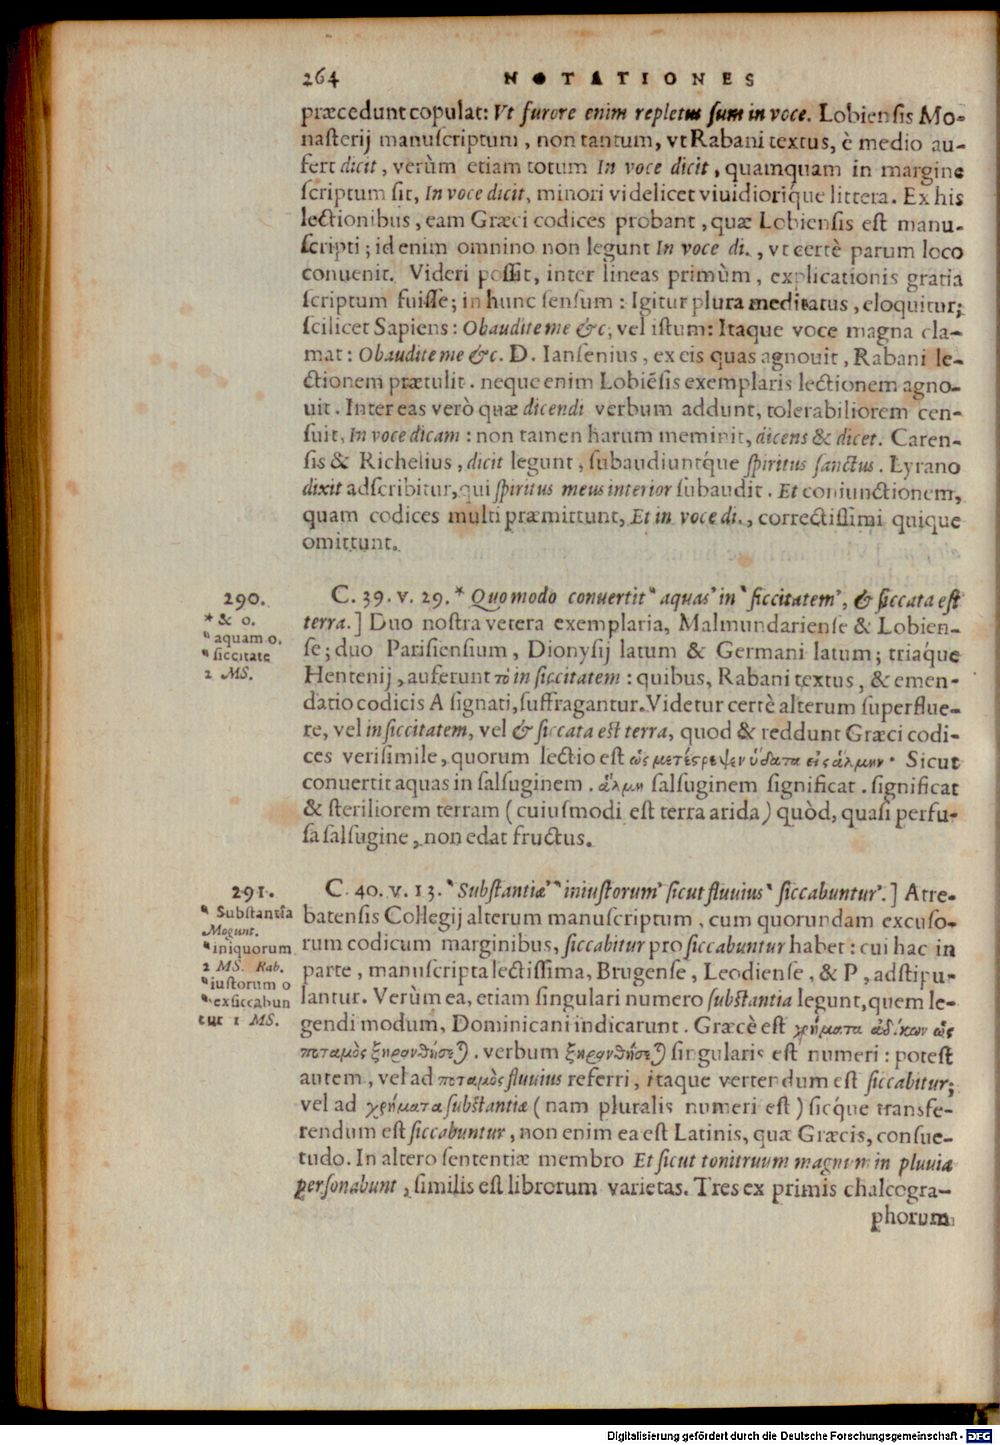 264 NOTATIONES
præcedunt copulat: Vt furore enim repletus sum in voce. Lobiensis Mo-
nasterij manuscriptum, non tantum, vt Rabani textus, è medio au-
fert dicit, verùm etiam totum In voce dicit, quamquam in margine
scriptum sit, In voce dicit, minori videlicet viuidioriq́ue littera. Ex his
lectionibus, eam Græci codices probant, quæ Lobiensis est manu-
scripti; id enim omnino non legunt In voce di., vt certè parum loco
conuenit. Videri possit, inter lineas primùm, explicationis gratia
scriptum fuisse; in hunc sensum: Igitur plura meditatus, eloquitur;
scilicet Sapiens: Obaudite me &c; vel istum: Itaque voce magna cla-
mat: Obaudite me &c. D. Iansenius, ex eis quas agnouit, Rabani le-
ctionem prætulit. neque enim Lobiēsis exemplaris lectionem agno-
uit. Inter eas verò quæ dicendi verbum addunt, tolerabiliorem cen-
suit, In voce dicam: non tamen harum meminit, dicens & dicet. Caren-
sis & Richelius, dicit legunt, subaudiuntq́ue spiritus sanctus. Lyrano
dixit adscribitur, qui spiritus meus interior subaudit. Et coniunctionem,
quam codices multi præmittunt, Et in voce di., correctissimi quique
omittunt.
290. C. 39. v. 29. * Quomodo conuertit " aquas' in ` siccitatem', & siccata est
* & o. terra.] Duo nostra vetera exemplaria, Malmundariense & Lobien-
" aquam o. se; duo Parisiensium, Dionysij latum & Germani latum; triaque
" siccitate Hentenij, auferunt τὸ in siccitatem: quibus, Rabani textus, & emen-
2 MS. datio codicis A signati, suffragantur. Videtur certè alterum superflue-
re, vel in siccitatem, vel & siccata est terra, quod & reddunt Græci codi-
ces verisimile, quorum lectio est ὡς μετέστρεψεν ὕδατα εἰς ἅλμην. Sicut
conuertit aquas in salsuginem. ἅλμη salsuginem significat. significat
& steriliorem terram (cuiusmodi est terra arida) quòd, quasi perfu-
sa salsugine, non edat fructus.
291. C. 40. v. 13. ` Substantiæ' ` iniustorum' sicut fluuius ` siccabuntur'.] Atre-
" Substantia batensis Collegij alterum manuscriptum, cum quorundam excuso-
Mogunt.
" iniquorum rum codicum marginibus, siccabitur pro siccabuntur habet: cui hac in
2 MS. Rab. parte, manuscripta lectissima, Brugense, Leodiense, & P, adstipu-
" iustorum o lantur. Verùm ea, etiam singulari numero substantia legunt, quem le-
" exsiccabun
tur 1 MS. gendi modum, Dominicani indicarunt. Græcè est χρήματα ἀδίκων ὡς
ποταμὸς ξηρανθήσεται. verbum ξηρανθήσεται singularis est numeri: potest
autem, vel ad ποταμὸς fluuius referri, itaque vertendum est siccabitur;
vel ad χρήματα substantiæ (nam pluralis numeri est) sicq́ue transfe-
rendum est siccabuntur, non enim ea est Latinis, quæ Græcis, consue-
tudo. In altero sententiæ membro Et sicut tonitruum magnum in pluuia
personabunt, similis est librorum varietas. Tres ex primis chalcogra-
phorum
Digitalisierung gefördert durch die Deutsche Forschungsgemeinschaft - DFG